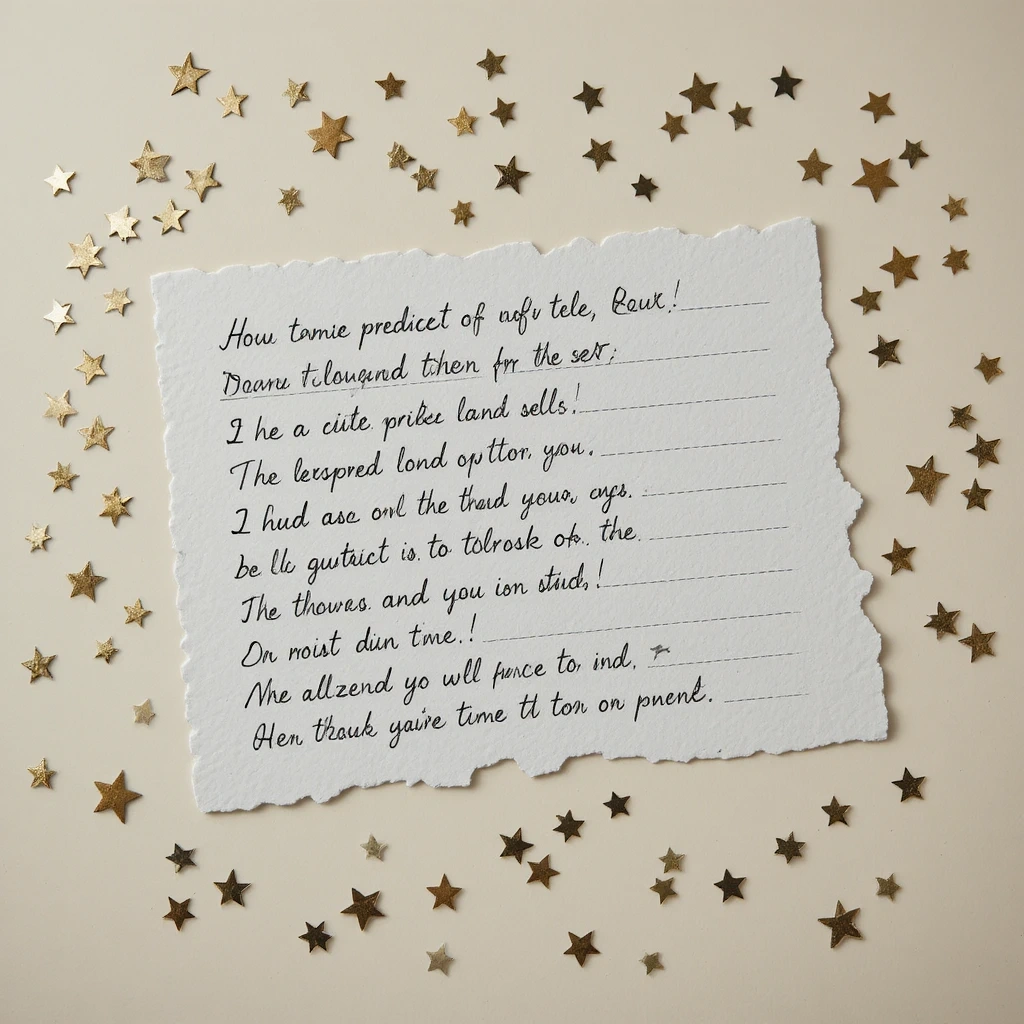 How tamie predicet of nofv tele, Raux!
Dearu t.lougend tihen for the set;
I he a ciite prilze land sells!
The lerspred lond opttor, you.
I hud ase onl the thrad your, ays.
be llc gustrict is to tolrosk ok. the
The thowes. and you ion stud,!
On moist diin tme.!
Nhe allzend yo wll pance to, ind,
Hen thauk yaire tume tt ton on pnent.